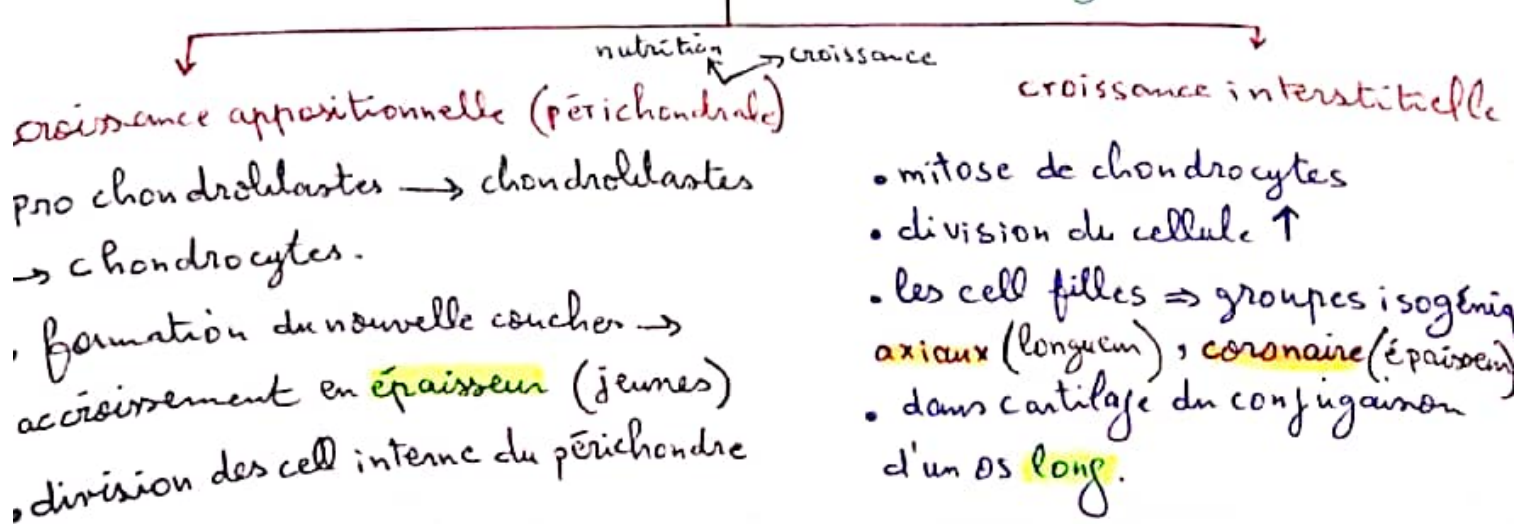 nutrition → croissance
croissance appositionnelle (périchondrale)
pro chondroblastes → chondroblastes
→ chondrocytes.
. formation du nouvelle coucher →
accroissement en épaisseur (jeunes)
. division des cell interne du périchondre
croissance interstitielle
• mitose de chondrocytes
• division du cellule ↑
• les cell filles ⇒ groupes isogéniq
axiaux (longueur), coronaire (épaisseur)
• dans cartilage du conjugaison
d'un os long.